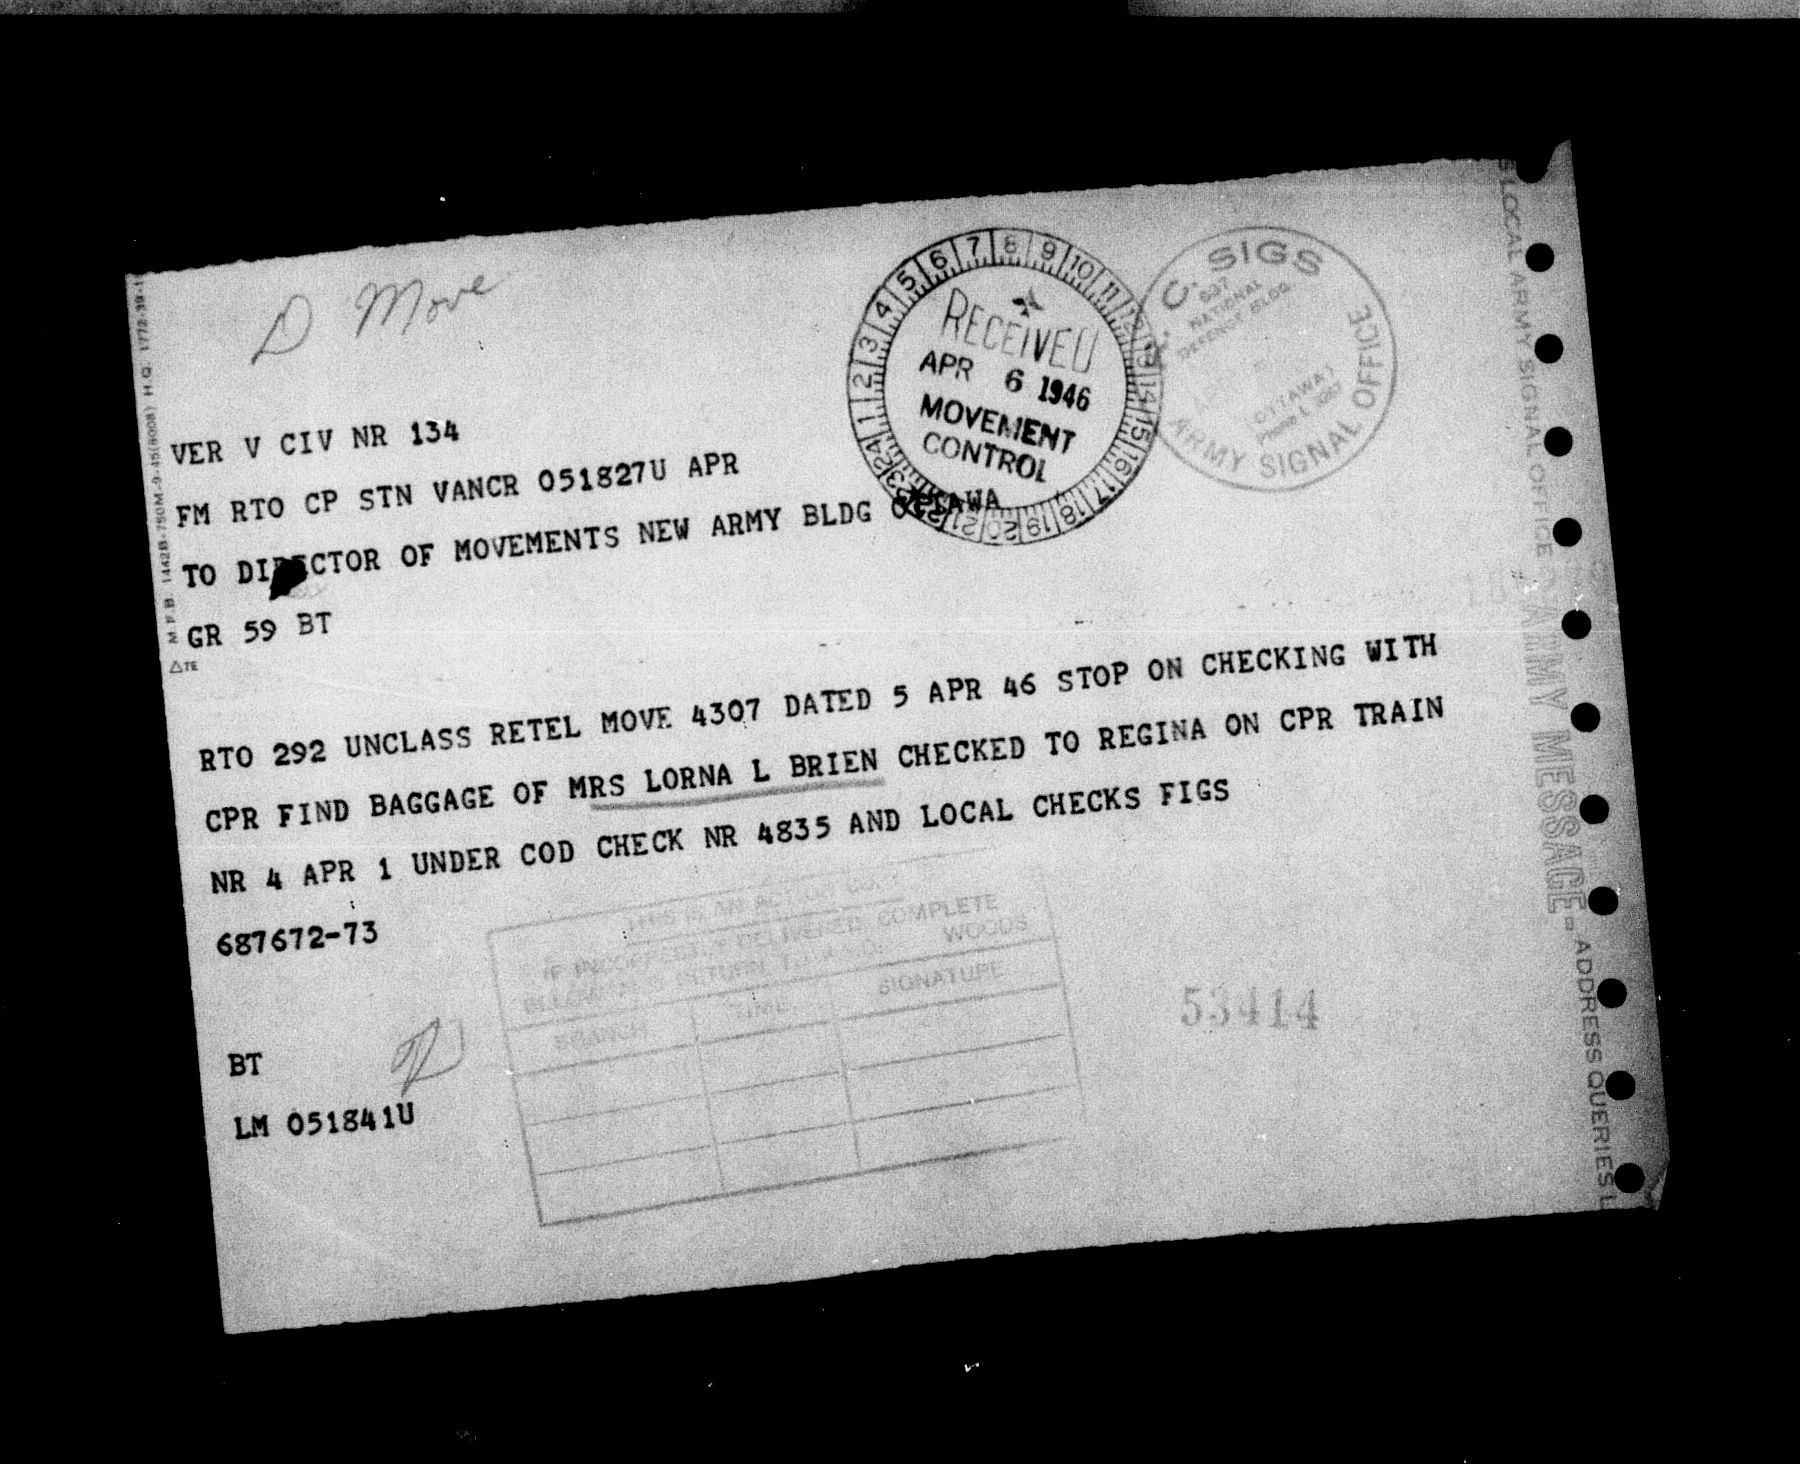 D Move
M.F.B. 1442B-750M-9-45(8008) H.Q. 1772-39-1
RECEIVED
APR 6 1946
MOVEMENT
CONTROL
1 2 3 4 5 6 7 8 9 10 11 12 13 14 15 16 17 18 19 20 21 22 23 24
R. C. SIGS
NATIONAL
DEFENCE BLDG.
OTTAWA
ARMY SIGNAL OFFICE
VER V CIV NR 134
FM RTO CP STN VANCR 051827U APR
TO DIRECTOR OF MOVEMENTS NEW ARMY BLDG OTTAWA
GR 59 BT
RTO 292 UNCLASS RETEL MOVE 4307 DATED 5 APR 46 STOP ON CHECKING WITH
CPR FIND BAGGAGE OF MRS LORNA L BRIEN CHECKED TO REGINA ON CPR TRAIN
NR 4 APR 1 UNDER COD CHECK NR 4835 AND LOCAL CHECKS FIGS
687672-73
THIS IS AN
DELIVERED COMPLETE
BELOW AND RETURN
WOODS
BRANCH TIME SIGNATURE
53414
BT
LM 051841U
LOCAL ARMY SIGNAL OFFICE
ARMY MESSAGE
ADDRESS QUERIES